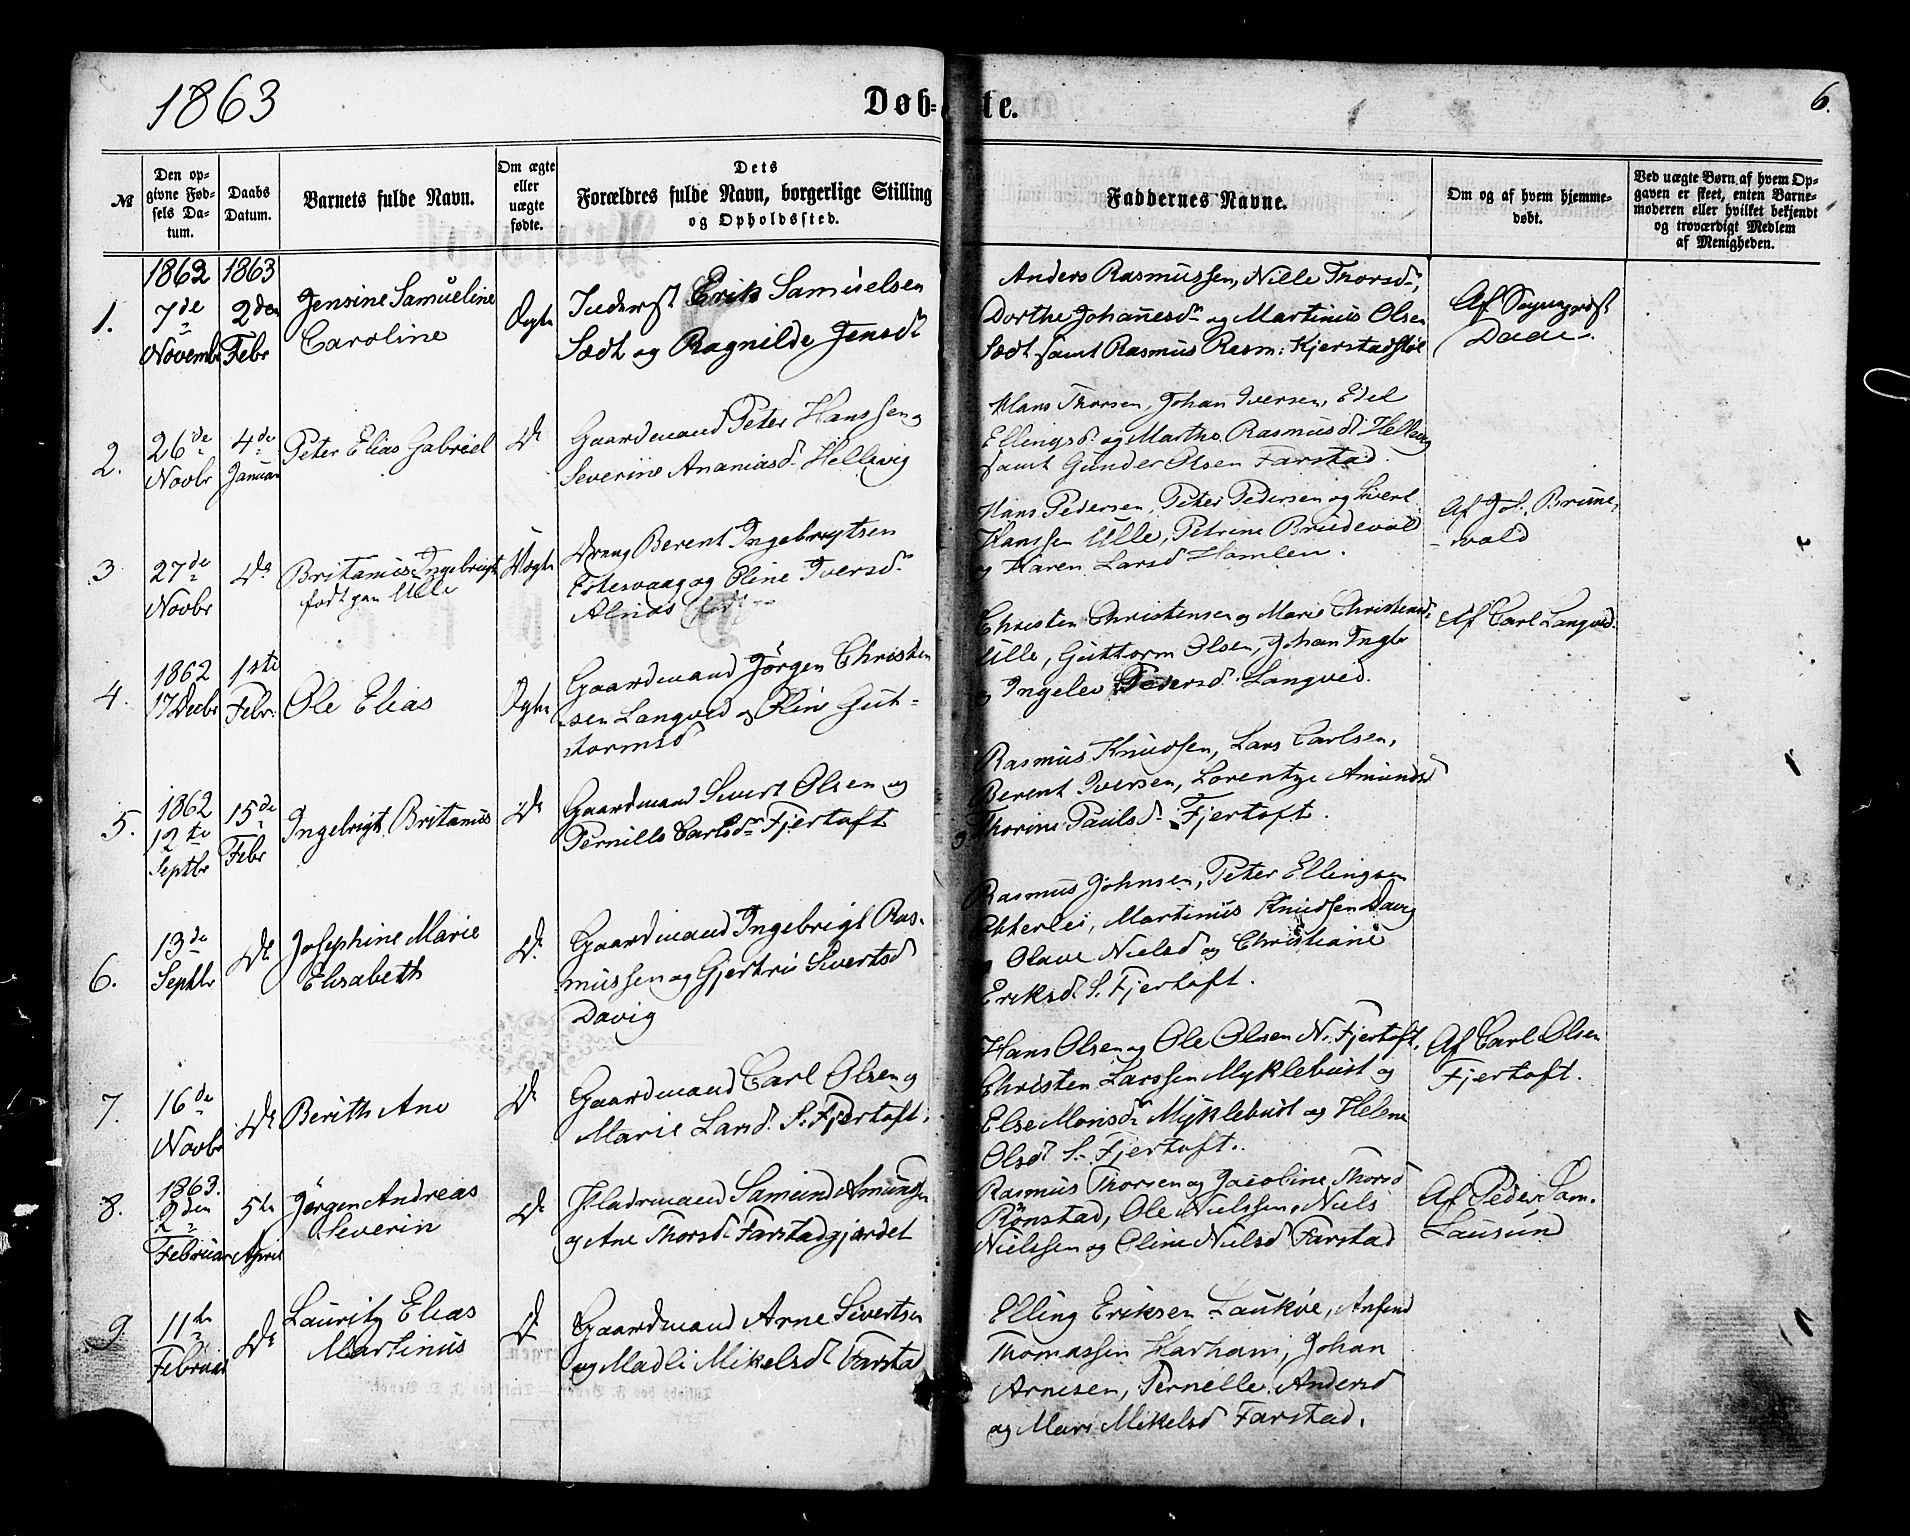 1863
Døbte.
6.
№
Den opgivne Fødsels Datum.
Daabs Datum.
Barnets fulde Navn.
Om ægte eller uægte fødte.
Dets Forældres fulde Navn, borgerlige Stilling og Opholdssted.
Faddernes Navne.
Om og af hvem hjemmedøbt.
Ved uægte Børn af hvem Opgaven er skeet, enten Barnemoderen eller hvilket bekjendt og troværdigt Medlem af Menigheden.
1.
1862
7de
Novembr
1863
2den
Febr
Jensine Samueline
Caroline
Ægte
Inderst Erik Samuelsen
Sædt og Ragnilde Jensd
Anders Rasmussen, Nille Thorsd,
Dorthe Johanesd og Martinus Olsen
Sædt samt Rasmus Rasm: Kjerstadstøl
Af
2.
26de
Novbr
4de
Januar
Peter Elias Gabriel
Do
Gaardmand Peter Hanssen og
Severine Ananiasd Hellevig
Hans Thorsen, Johan Iversen, Edel
Ellingsd og Marthe Rasmusd Hellevig
samt Gunder Olsen Farstad
3
27de
Novbr
Do
Britanus Ingebrigt
født paa Ulle
Uægte
Dreng Berent Ingebrigtsen
og Oline Iversd
Alnæs
Hans Pedersen, Peter Pedersen og Sivert
Hanssen Ulle, Petrine Brudevol
og Karen Larsd Hamlen.
Af Joh. Brune
vold
4.
1862
17 Decbr
1ste
Febr.
Ole Elias
Ægte
Gaardmand Jørgen Christen
sen Langved og Oline Gut-
tormsd
Christen Christensen og Marie Christensd
Ulle, Guttorm Olsen, Johan Ingbr
og Ingelev Pedersd Langved.
Af Carl Langved.
5.
1862
12te
Septbr
15de
Febr
Ingebrigt Britanus
Do
Gaardmand Sivert Olsen og
Pernille Carlsd Fjertoft
Rasmus Knudsen, Lars Carlsen,
Berent Iversen, Lorentze Amundsd
og Thorine Paulsd Fjertoft.
6.
13de
Septbr
Do
Josephine Marie
Elisabeth
Do
Gaardmand Ingebrigt Ras-
mussen og Gjertrue Sivertsd
Davig
Rasmus Johnsen, Peter Ellingsen
Martinus Knudsen Davig
og Olave Nielsd og Christiane
Eriksd S. Fjertoft.
7.
16de
Novbr
Do
Berith Ane
Do
Gaardmand Carl Olsen og
Marie Larsd S. Fjertoft.
Hans Olsen og Ole Olsen N. Fjertoft,
Christen Larssen Myklebust og
Else Monsd Myklebust og Helene
Olsd S. Fjertoft.
Af Carl Olsen
Fjertoft.
8.
1863.
2den
Februar
5te
April
Jørgen Andreas
Severin
Do
Pladsmand Samund Amundsen
og Ane Thorsd Farstadgjærdet
Rasmus Thorsen og Jacobine Thorsd
Rønstad, Ole Nielssen, Niels
Nielssen og Oline Nielsd Farstad
Af Peder Sam.
Lausund
9.
11te
Februar
Do
Lauritz Elias
Martinus
Do
Gaardmand Arne Sivertsen
og Madli Mikelsd Farstad
Elling Eriksen Laukøe, Anfind
Thomassen Harham, Johan
Arnesen, Pernelle Andersd
og Mari Mikelsd Farstad.